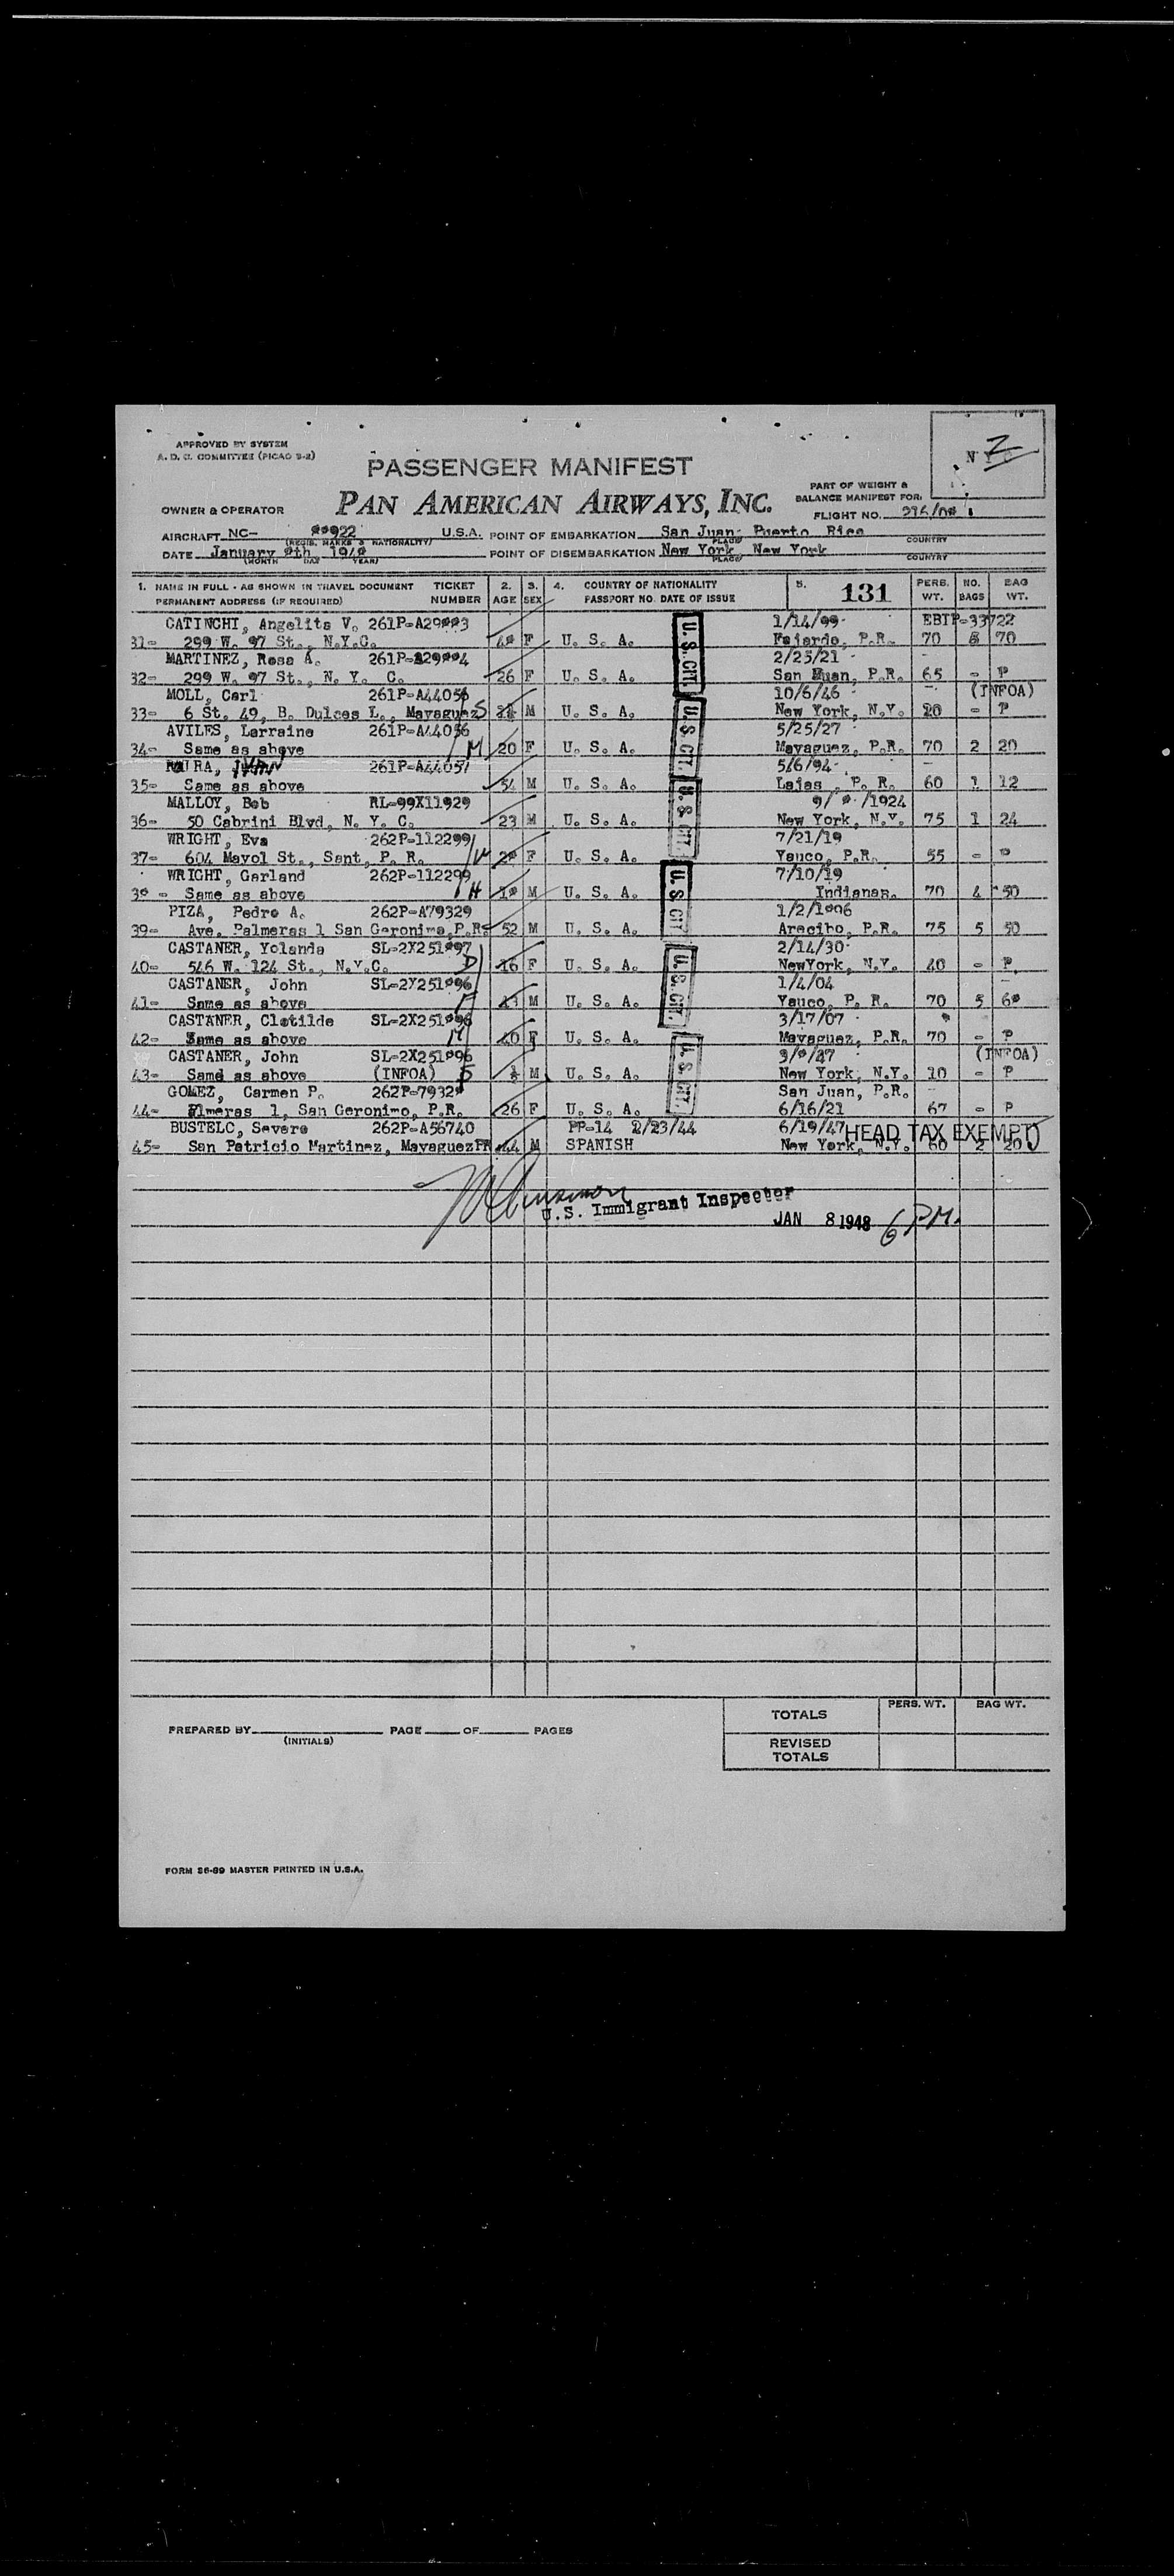 APPROVED BY SYSTEM
A. D. C. COMMITTEE (PICAO 9-2)
PASSENGER MANIFEST
PAN AMERICAN AIRWAYS, INC.
2
PART OF WEIGHT &
BALANCE MANIFEST FOR:
OWNER & OPERATOR
FLIGHT NO.
AIRCRAFT NC- 88922 U.S.A. POINT OF EMBARKATION San Juan- Puerto Rico
(REGIS. MARKS & NATIONALITY) PLACE COUNTRY
DATE January 8th 1948 POINT OF DISEMBARKATION New York New York
(MONTH DAY YEAR) PLACE COUNTRY
1. NAME IN FULL - AS SHOWN IN TRAVEL DOCUMENT TICKET 2. 3. 4. COUNTRY OF NATIONALITY 5. 131 PERS. NO. BAG
PERMANENT ADDRESS (IF REQUIRED) NUMBER AGE SEX PASSPORT NO. DATE OF ISSUE WT. BAGS WT.
CATINCHI, Angelita V. 1/14/99- EBTP-33722
31- 299 W. 97 St., N.Y.C. 48 F U. S. A. Fajardo, P.R. 70 5 70
MARTINEZ, Rosa A. 2/25/21 -
32- 299 W. 97 St., N. Y. C. 26 F U. S. A. San Juan, P.R. 65 - P
MOLL, Carl 261P-A44056 10/6/46 - (INFOA)
33- 6 St. 49, B. Dulces L., Mayaguez S M U. S. A. New York, N.Y. 20 - P
AVILES, Lorraine 261P-A44056 5/25/27
34- Same as above M 20 F U. S. A. Mayaguez, P.R. 70 2 20
261P-A44057 5/6/94-
35- Same as above 54 M U. S. A. Lajas, P. R. 60 1 12
MALLOY, Bob RL-99X11929 /1924
36- 50 Cabrini Blvd, N. Y. C. 23 M U. S. A. New York, N.Y. 75 1 24
WRIGHT, Eva 262P-112299 7/21/19
37- 604 Mayol St., Sant, P. R. W 28 F U. S. A. Yauco, P.R. 55 - P
WRIGHT, Garland 262P-112299 7/10/19
38 - Same as above H M U. S. A. Indianas. 70 4 50
PIZA, Pedro A. 262P-A79329 1/2/1896
39- Ave. Palmeras 1 San Geronimo, P.R. 52 M U. S. A. Arecibo, P.R. 75 5 50
CASTANER, Yolanda SL-2X251897 2/14/30-
40- 546 W. 124 St., N.Y.C. D 16 F U. S. A. NewYork, N.Y. 40 - P
CASTANER, John SL-2X251896 1/4/04
41- Same as above F 43 M U. S. A. Yauco, P. R. 70 5 68
CASTANER, Clotilde SL-2X251896 3/17/07
42- Same as above M 40 F U. S. A. Mayaguez, P.R. 70 - P
CASTANER, John SL-2X251896 3/8/47 (INFOA)
43- Same as above (INFOA) S M U. S. A. New York, N.Y. 10 - P
GOMEZ, Carmen P. San Juan, P.R.
44- Plmeras 1, San Geronimo, P.R. 26 F U. S. A. 6/16/21 67 - P
BUSTELO, Severo 262P-A56740 PP-14 2/23/44 6/19/47 HEAD TAX EXEMPT
45- San Patricio Martinez, Mayaguez PR 44 M SPANISH New York, N.Y. 60 2 20
U.S. CIT.
U.S CIT.
U.S CIT
U.S CIT
U.S. CIT.
U.S CIT.
U.S. Immigrant Inspector
JAN 8 1948 6 PM.
TOTALS PERS. WT. BAG WT.
PREPARED BY PAGE OF PAGES
(INITIALS)
REVISED
TOTALS
FORM 26-89 MASTER PRINTED IN U.S.A.